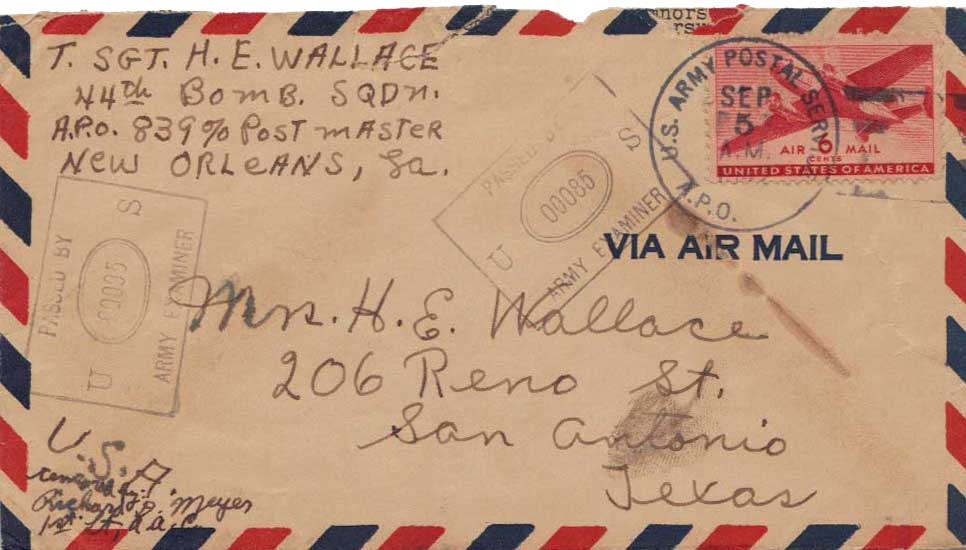 T. SGT. H. E. WALLACE
44th BOMB. SQDN.
A.P.O. 839 % POST MASTER
NEW ORLEANS, La.
nors
U.S. ARMY POSTAL SERV
SEP
5
A.M.
A.P.O.
AIR MAIL
6
CENTS
UNITED STATES OF AMERICA
PASSED BY
U 00085 S
ARMY EXAMINER
VIA AIR MAIL
PASSED BY
U 00085 S
ARMY EXAMINER
Mrs. H. E. Wallace
206 Reno St.
San Antonio
Texas
U.S.A.
censored by
Richard P. Meyer
1st Lt,